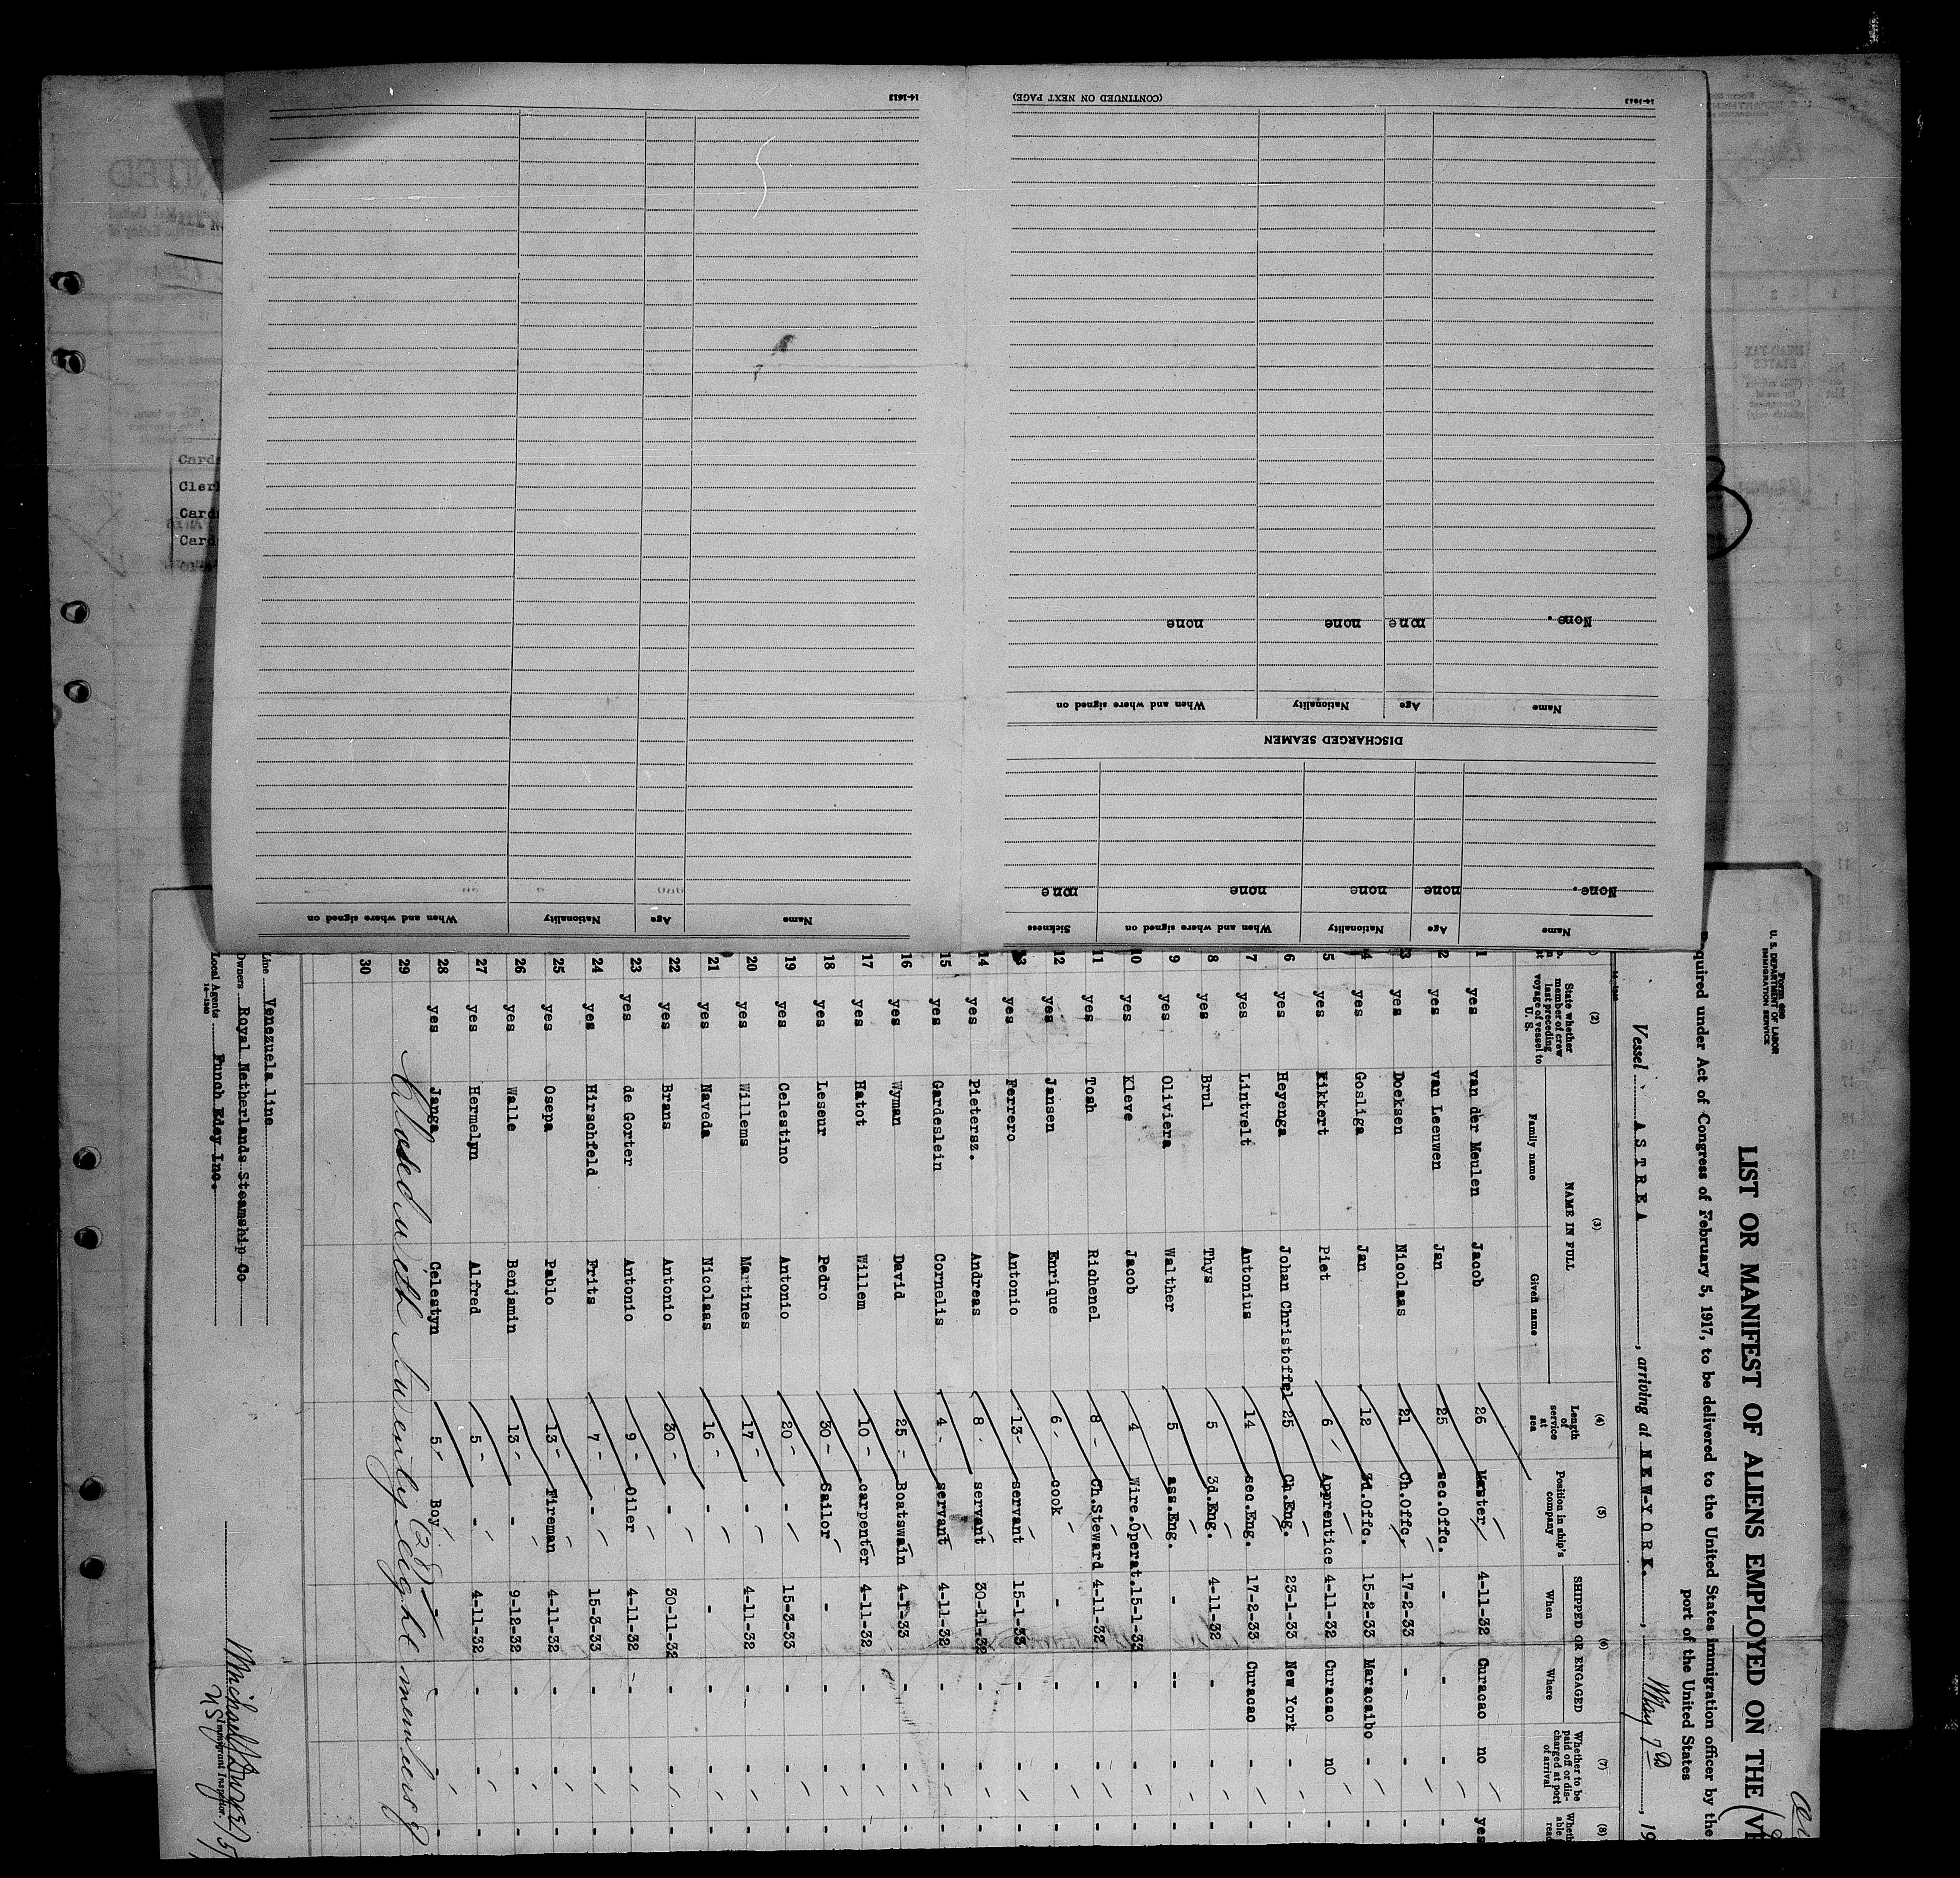 Form 689
U. S. DEPARTMENT OF LABOR
IMMIGRATION SERVICE
LIST OR MANIFEST OF ALIENS EMPLOYED ON THE
quired under Act of Congress of February 5, 1917, to be delivered to the United States immigration officer by the
port of the United States
Vessel ASTREA, arriving at NEW-YORK., May 7th, 19
(2) (3) (4) (5) (6) (7) (8)
State whether member of crew last preceding voyage of vessel to U. S.
NAME IN FULL
Family name Given name
Length of service at sea
Position in ship's company
SHIPPED OR ENGAGED
When Where
Whether to be paid off or discharged at port of arrival
1 yes van der Meulen Jacob 26 Master 4-11-32 Curacao no yes
2 yes van Leeuwen Jan 25 sec.Offc. - - - -
3 yes Doeksen Nicolaas 21 Ch.Offc. 17-2-33 - - -
4 yes Gosliga Jan 12 3d.Offc. 15-2-33 Maracaibo - -
5 yes Kikkert Piet 6 Apprentice 4-11-32 Curacao no -
6 yes Heyenga Johan Christoffel 25 Ch.Eng. 23-1-33 New York - -
7 yes Lintvelt Antonius 14 sec.Eng. 17-2-33 Curacao - -
8 yes Brul Thys 5 3d.Eng. 4-11-32 - - -
9 yes Oliviera Walther 5 ass.Eng. - -- - -
10 yes Kleve Jacob 4 Wire.Operat. 15-1-33 - - -
11 yes Tosh Richenel 8 - Ch.Steward 4-11-32 - - -
12 yes Jansen Enrique 6 - cook - - - -
13 yes Ferrero Antonio 13- servant 15-1-33 - - -
14 yes Pietersz. Andreas 8 - servant 30-11-32 - - -
15 yes Gardeslein Cornelis 4 - servant 4-11-32 - - -
16 yes Wyman David 25 - Boatswain 4-1-33 - - -
17 yes Hatot Willem 10 - carpenter 4-11-32 - - -
18 yes Leseur Pedro 30 - Sailor - - - -
19 yes Celestino Antonio 20 - - 15-3-33 - - -
20 yes Willems Martines 17 - - 4-11-32 - - -
21 yes Naveda Nicolaas 16 - - - - - -
22 yes Brans Antonio 30 - - 30-11-32 - - -
23 yes de Gorter Antonio 9 - Oiler 4-11-32 - - -
24 yes Hirschfeld Frits 7 - - 15-3-33 - - -
25 yes Osepa Pablo 13 - Fireman 4-11-32 - - -
26 yes Walle Benjamin 13 - - 9-12-32 - - -
27 yes Hermelyn Alfred 5 - - 4-11-32 - - -
28 yes Janga Celestyn 5 - Boy - - - -
29 Closed with twenty eight (28) members
30
Line Venezuela line
Owners Royal Netherlands Steamship Co
Local Agents Funch Edey Inc.
14-1240
Immigrant Inspector.
Name Age Nationality When and where signed on Sickness
None. none none none none
DISCHARGED SEAMEN
Name Age Nationality When and where signed on
None. none none none
(CONTINUED ON NEXT PAGE)
14-1613
Name Age Nationality When and where signed on
14-1613